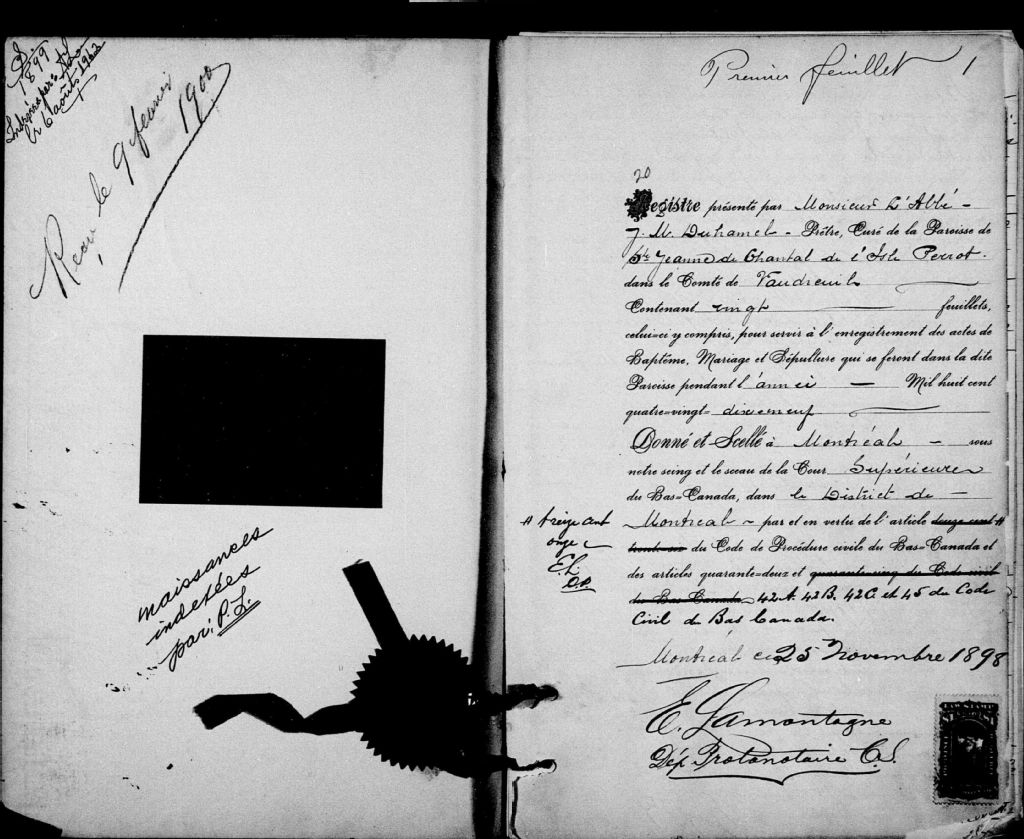 1899
le 6 août 1962
Reçu le 9 fevrier 1900
naissances
indexées
par: P. L.
Premier feuillet 1
20
Registre présenté par Monsieur L'Abbé -
J. M. Duhamel - Prêtre, Curé de la Paroisse de
Ste Jeanne de Chantal de l'Isle Perrot.
dans le Comté de Vaudreuil
Contenant vingt feuillets,
celui=ci y compris, pour servir à l'enregistrement des actes de
Baptême, Mariage et Sépulture qui se feront dans la dite
Paroisse pendant l'année - Mil huit cent
quatre=vingt= dix neuf
Donné et Scellé à Montréal - sous
notre seing et le sceau de la Cour Supérieure
du Bas=Canada, dans le District de -
# treize cent
onze
E. L.
D. P.
Montreal - par et en vertu de l'article douze cent #
trente-six du Code de Procédure civile du Bas=Canada et
des articles quarante=deux et quarante-cinq du Code civil
du Bas Canada 42A. 42B. 42C. et 45 du Code
Civil du Bas Canada.
Montréal ce 25 Novembre 1898
E. Lamontagne
Dép Protonotaire C.S.